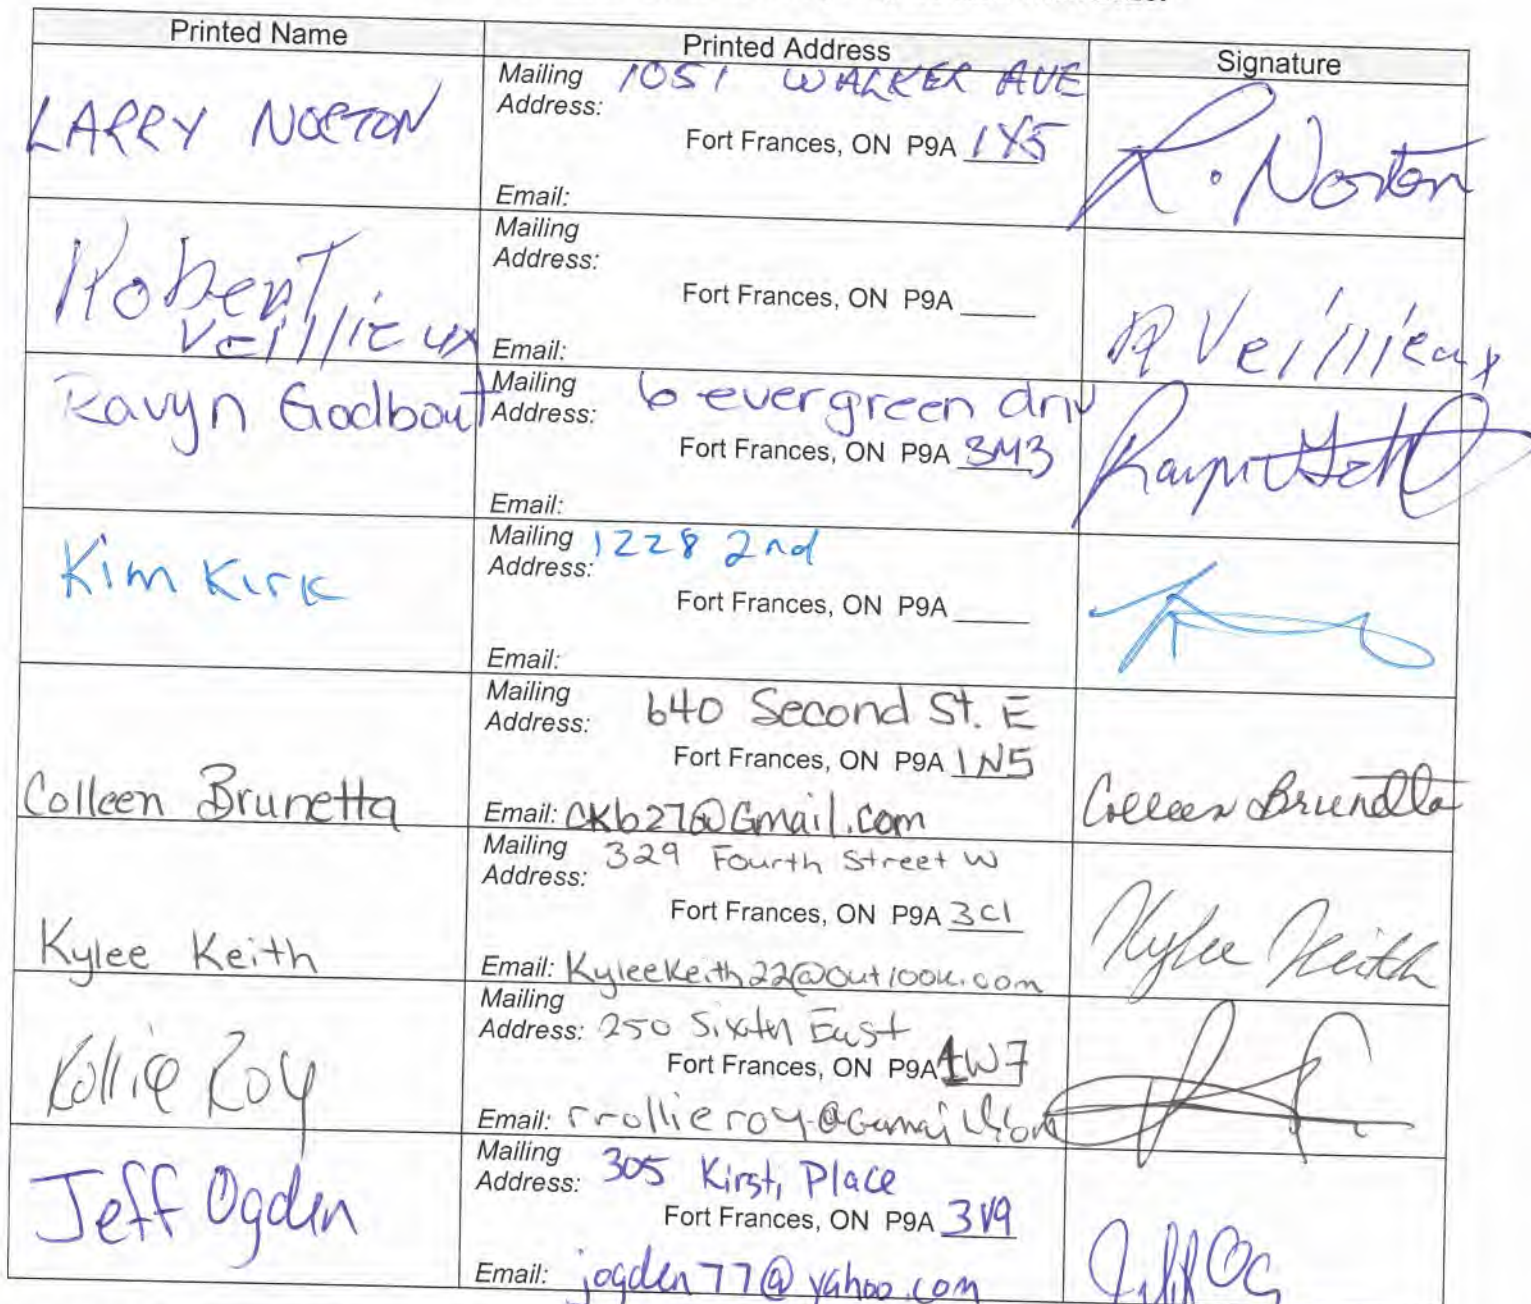 Printed Name
Printed Address
Signature
LARRY NORTON
Mailing 1051 WALKER AVE
Address:
Fort Frances, ON P9A 1Y5
Email:
R. Norton
Robert
Veillieux
Mailing
Address:
Fort Frances, ON P9A ____
Email:
R Veillieux
Ravyn Godbout
Mailing
Address: 6 evergreen driv
Fort Frances, ON P9A 3M3
Email:
Kim Kirk
Mailing 1228 2nd
Address:
Fort Frances, ON P9A ____
Email:
Colleen Brunetta
Mailing
Address: 640 Second St. E
Fort Frances, ON P9A 1N5
Email: CKb27@Gmail.com
Colleen Brunetta
Kylee Keith
Mailing 329 Fourth Street W
Address:
Fort Frances, ON P9A 3C1
Email: KyleeKeith22@outlook.com
Kylee Keith
Rollie Roy
Mailing
Address: 250 Sixth East
Fort Frances, ON P9A 1W7
Email: rrollieroy@Gmail.com
Jeff Ogden
Mailing
Address: 305 Kirsti Place
Fort Frances, ON P9A 3V9
Email: jogden77@yahoo.com